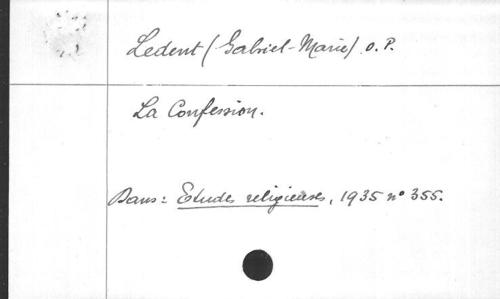 Ledent (Gabriel-Marie) O.P.
La Confession.
Dans: Etudes religieuses, 1935 n° 355.